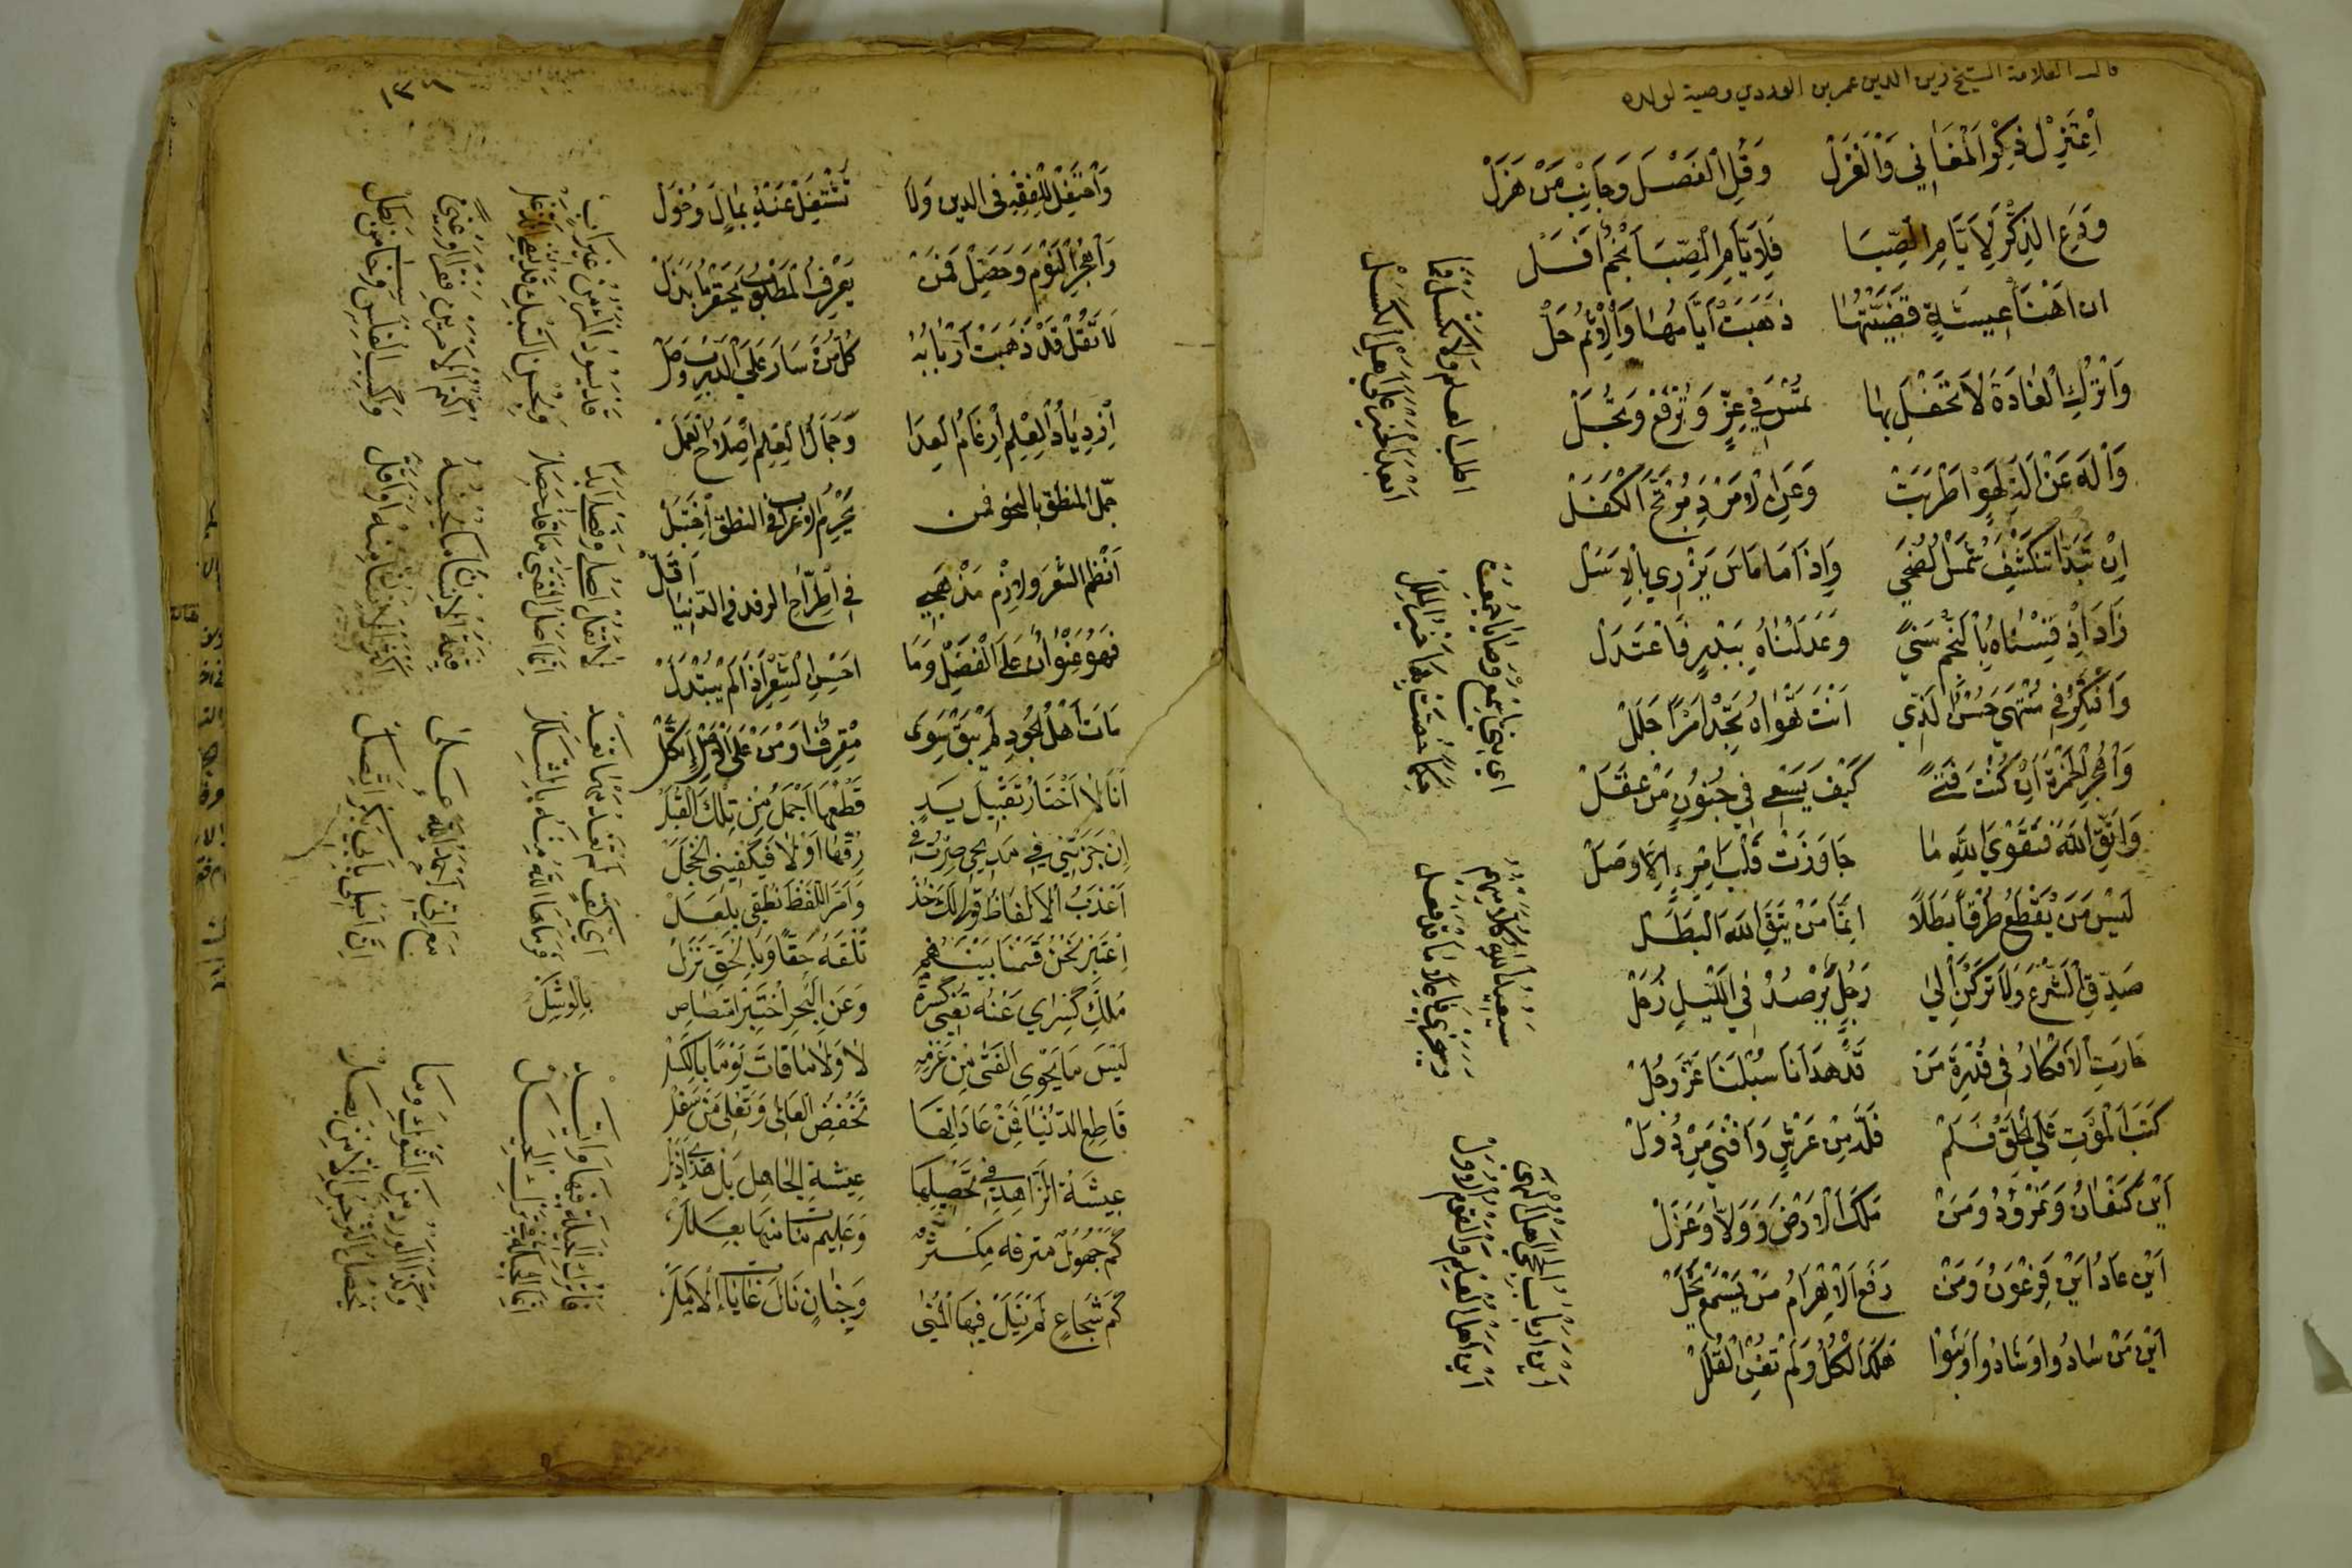 قال العلامة الشيخ زين الدين عمر بن الوردي وصية لولده
اِعْتَزِلْ ذِكْرَ الْمَغَانِي وَالْغَزَلْ وَقُلِ الْفَصْلَ وَجَانِبْ مَنْ هَزَلْ
وَدَعِ الذِّكْرَ لِأَيَّامِ الصِّبَا فَلِأَيَّامِ الصِّبَا نَجْمٌ أَفَلْ
ان أَهْنَأَ عِيشَةٍ قَضَيْتُهَا ذَهَبَتْ أَيَّامُهَا وَالْإِثْمُ حَلْ
وَاتْرُكِ الْغَادَةَ لَا تَحْفَلْ بِهَا تُمْسِ فِي عِزٍّ وَتُرْفَعْ وَتُجَلْ
وَالْهَ عَنْ آلَةِ لَهْوٍ اَطْرَبَتْ وَعَنِ الْأَمْرَدِ مُرْتَجِّ الْكَفَلْ
إِنْ تَبَدَّا تَنْكَشِفْ شَمْسُ الضُّحَى وَإِذَا مَا مَاسَ يَزْرِي بِالْأَسَلْ
زَادَ إِذْ قِسْنَاهُ بِالنَّجْمِ سَنًى وَعَدَلْنَاهُ بِبَدْرٍ فَاعْتَدَلْ
وَافْتَكِرْ فِي مُنْتَهَى حُسْنِ الَّذِي اَنْتَ تَهْوَاهُ تَجِدْ اَمْرًا جَلَلْ
وَاهْجُرِ الْخَمْرَةَ اِنْ كُنْتَ فَتًى كَيْفَ يَسْعَى فِي جُنُونٍ مَنْ عَقَلْ
وَاتَّقِ اللهَ فَتَقْوَى اللهِ مَا جَاوَرَتْ قَلْبَ امْرِءٍ إِلَّا وَصَلْ
لَيْسَ مَنْ يَقْطَعُ طُرْقًا بَطَلًا اِنَّمَا مَنْ يَتَّقِ اللهَ الْبَطَلْ
صَدِّقِ الشَّرْعَ وَلَا تَرْكَنْ اِلَى رَجُلٍ يَرْصُدُ فِي اللَّيْلِ زُحَلْ
حَارَتِ الْأَفْكَارُ فِي قُدْرَةِ مَنْ قَدْ هَدَانَا سُبْلَنَا عَزَّ وَجَلْ
كَتَبَ الْمَوْتَ عَلَى الْخَلْقِ فَكَمْ فَلَّ مِنْ عَرْشٍ وَاَفْنَى مِنْ دُوَلْ
اَيْنَ كَنْعَانُ وَنَمْرُودُ وَمَنْ مَلَكَ الْأَرْضَ وَوَلَّا وَعَزَلْ
اَيْنَ عَادُ اَيْنَ فِرْعَوْنُ وَمَنْ رَفَعَ الْأَهْرَامَ مَنْ يَسْمَعْ يَخَلْ
اَيْنَ مَنْ سَادُوا وَشَادُوا وَبَنَوْا هَلَكَ الْكُلُّ وَلَمْ تُغْنِ الْقُلَلْ
اَيْنَ ارباب الحجى اهل النهى
اَيْنَ اهل العلم والقوم الاول
سيعيد الله كلا منهم
وسيجزي فاعلا ما قد فعل
اي بني اسمع وصايا جمعت
حكما خصت بها خير الملل
اطلب العلم ولا تكسل فما
ابعد الخير على اهل الكسل
وَاحْتَفِلْ لِلْفِقْهِ فِي الدين وَلَا تَشْتَغِلْ عَنْهُ بِمَالٍ وَخَوَلْ
وَاهْجُرِ النَّوْمَ وَحَصِّلْهُ فَمَنْ يَعْرِفِ الْمَطْلُوبَ يَحْقِرْ مَا بَذَلْ
لَا تَقُلْ قَدْ ذَهَبَتْ أَرْبَابُهُ كُلُّ مَنْ سَارَ عَلَى الدَّرْبِ وَصَلْ
اِزْدِيَادُ الْعِلْمِ اِرْغَامُ الْعِدَا وَجَمَالُ الْعِلْمِ اِصْلَاحُ الْعَمَلْ
جمّل المنطق بالنحو فمن يُحْرَمِ الْإِعْرَابَ فِي النطق اخْتَبَلْ
اَنْظِمِ الشعر ولازم مذهبي فِي اطِّرَاحِ الرفد في الدُّنْيَا اَقَلْ
فَهُوَ عُنْوَانٌ عَلَى الْفَضْلِ وَمَا احْسَنَ الشِّعْرَ اِذَا لَمْ يُبْتَذَلْ
مَاتَ اَهْلُ الْجُودِ لَمْ يَبْقَ سِوَى مُقْرِفٍ اَوْ مَنْ عَلَى الْأَصْلِ اتَّكَلْ
اَنَا لَا اَخْتَارُ تَقْبِيلَ يَدٍ قَطْعُهَا اَجْمَلُ مِنْ تِلْكَ الْقُبَلْ
اِنْ جَزَتْنِي فِي مَدِيحِي صِرْتُ فِي رِقِّهَا اَوْ لَا فَيَكْفِينِي الْخَجَلْ
اَعْذَبُ الْأَلْفَاظِ قَوْلِي لَكَ خُذْ وَاَمَرُّ اللَّفْظِ نُطْقِي بِلَعَلْ
اِعْتَبِرْ نَحْنُ قَسَمْنَا بَيْنَهُمْ تَلْقَهُ حَقًّا وَبِالْحَقِّ نَزَلْ
مُلْكُ كِسْرَى عَنْهُ تُغْنِي كِسْرَةٌ وَعَنِ الْبَحْرِ اجْتِزَاء
لَيْسَ مَا يَحْوِي الْفَتَى مِنْ عَزْمِهِ لَا وَلَا مَا فَاتَ يَوْمًا بِالْكَسَلْ
قَاطِعِ الدُّنْيَا فَمِنْ عَادَاتِهَا تَخْفِضُ الْعَالِي وَتُعْلِي مَنْ سَفَلْ
عِيشَةُ الزَّاهِدِ فِي تَحْصِيلِهَا عِيشَةُ الْجَاهِلِ بَلْ هَذَا اَذَلْ
كَمْ جَهُولٍ مترفه مكثر وَعَلِيمٍ مات منها بعلل
كَمْ شُجَاعٍ لَمْ يَنَلْ فِيهَا الْمُنَى وَجَبَانٍ نَالَ غَايَاتِ الْأَمَلْ
فاترك الحيلة فيها واتئد
انما الحيلة في ترك الحيل
اي كف لم تفد مما تفد
فرماها الله منه بالشلل
لا تقل اصلي وفصلي ابدا
انما اصل الفتى ما قد حصل
قد يسود المرء من غير اب
وبحسن السبك قد ينفى الزغل
وكذا الورد من الشوك وما
مع اني احمد الله على
نسبي اذ بابي بكر اتصل
قيمة الانسان ما يحسنه
اكثر الانسان منه او اقل
اكتم الامرين فقرا وغنى
واكسب الفلس وحاسب من بطل
١٣٤